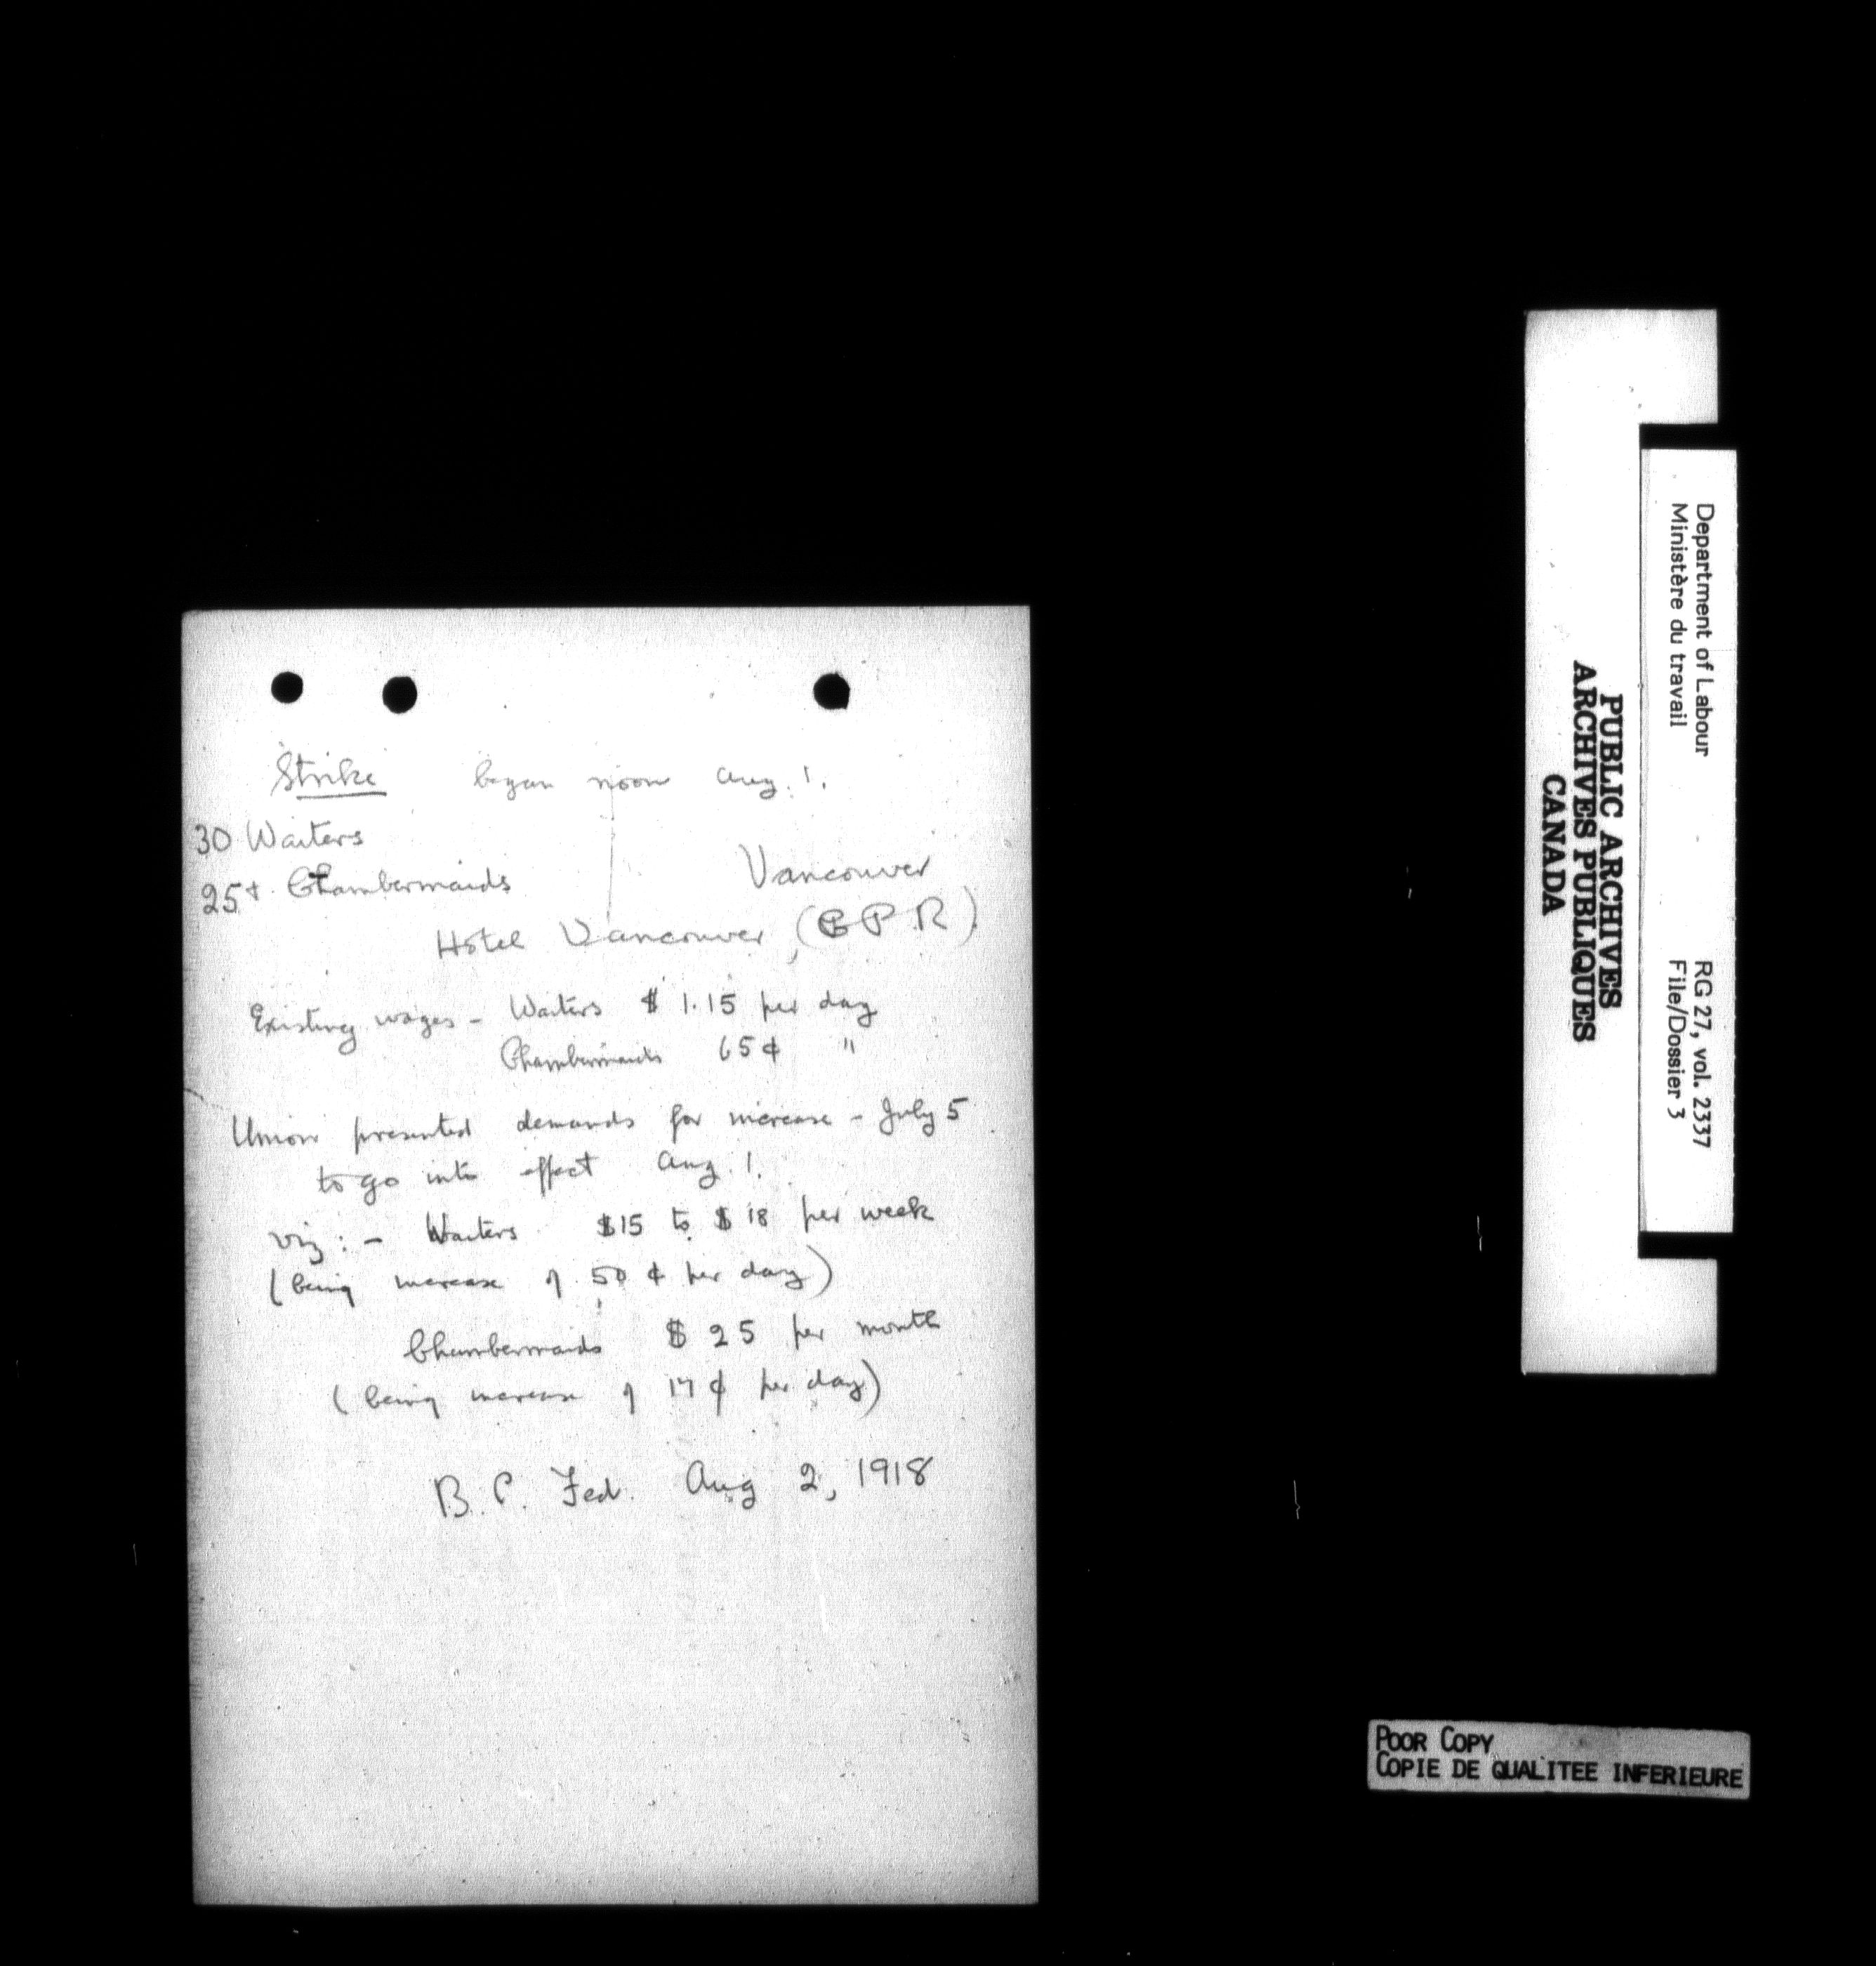 Strike began noon Aug. 1.
30 Waiters
25+ Chambermaids
Vancouver
Hotel Vancouver (C P R)
Existing wages - Waiters $ 1.15 per day
Chambermaids 65 ¢ "
Union presented demands for increase - July 5
to go into effect Aug. 1.
viz: - Waiters $15 to $18 per week
(being increase of 50 ¢ per day)
Chambermaids $ 25 per month
(being increase of 17 ¢ per day)
B. C. Fed. Aug 2, 1918
Department of Labour
Ministère du travail
RG 27, vol. 2337
File/Dossier 3
PUBLIC ARCHIVES
ARCHIVES PUBLIQUES
CANADA
POOR COPY
COPIE DE QUALITEE INFERIEURE